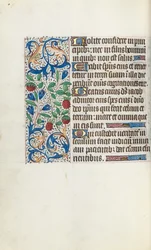 Nolite confidere in prin
cipibus: in filiis hominum
in quibus non est salus.
Exibit spiritus eius et rever
tetur in terram suam in illa die
peribunt omnes cogitationes eorum.
Beatus cuius deus iacob
adiutor eius spes eius in domino
deo ipsius qui fecit celum et
terram: mare et omnia que
in eis sunt.
Qui custodit veritatem in
seculum facit iudicium iniuri
am patientibus: dat escam esu
rientibus.